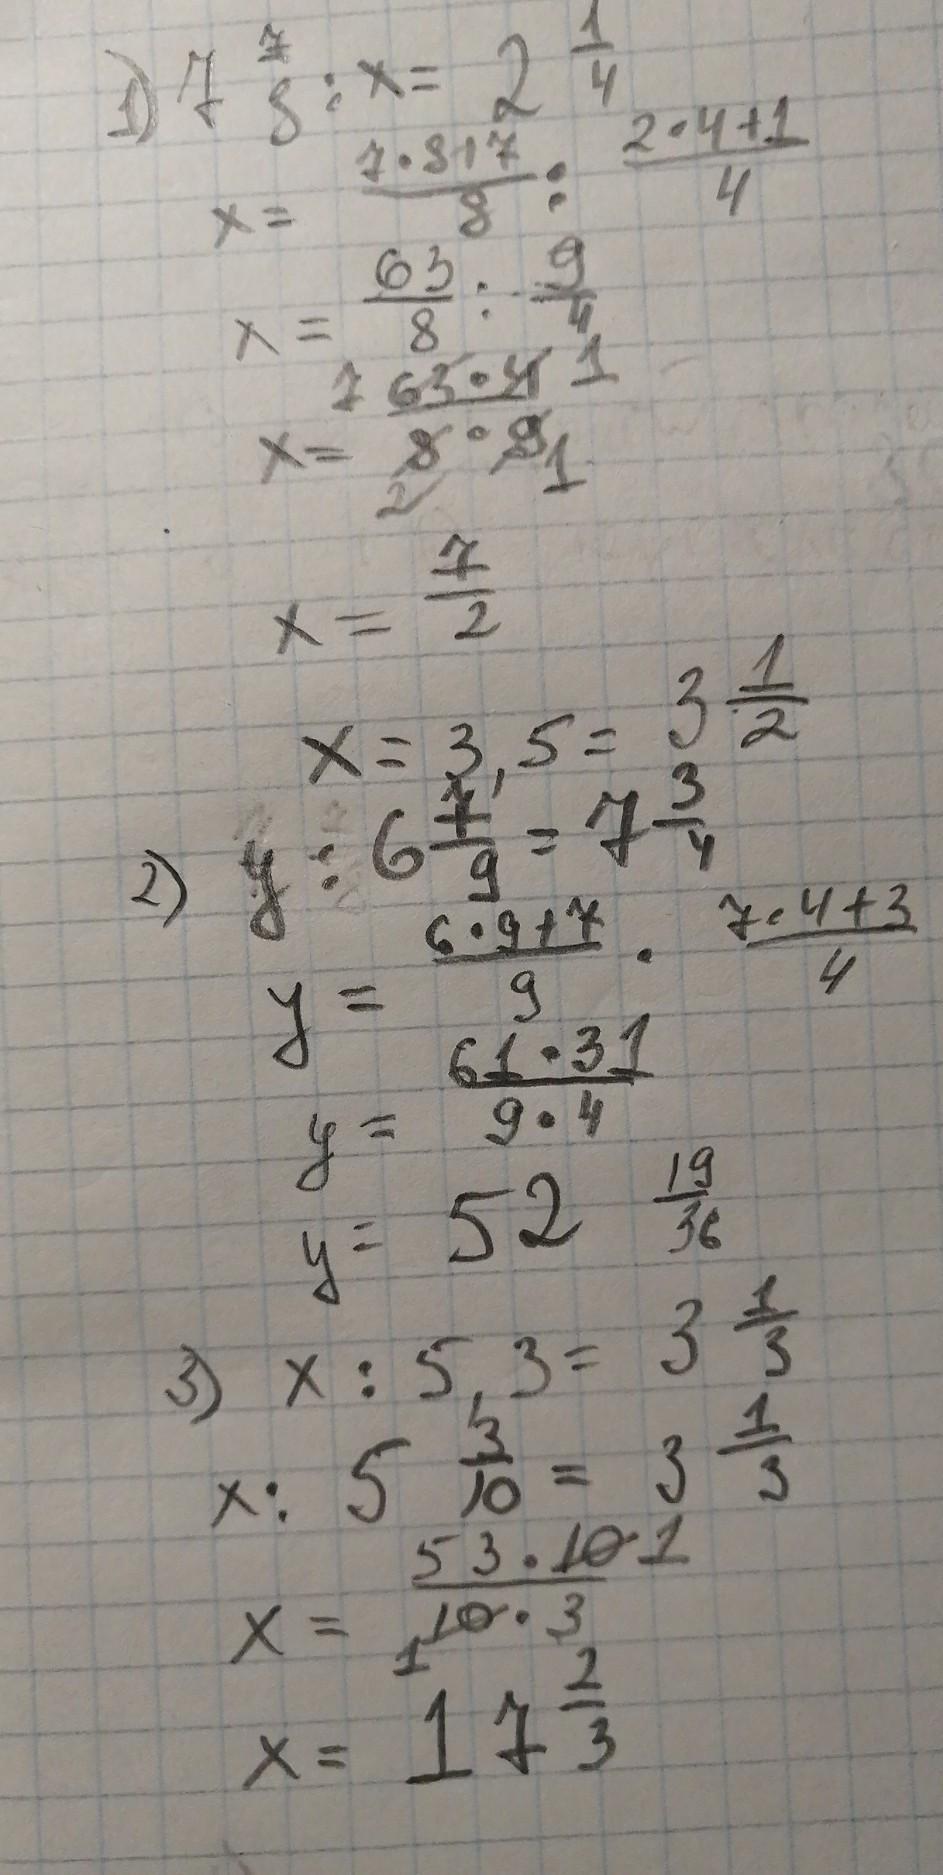 1) 7 7/8 : x = 2 1/4
x = (7·8+7)/8 : (2·4+1)/4
x = 63/8 : 9/4
x = 7 63·4 1 / 2 8·9 1
x = 7/2
x = 3,5 = 3 1/2
2) y : 6 7/9 = 7 3/4
y = (6·9+7)/9 · (7·4+3)/4
y = (61·31)/(9·4)
y = 52 19/36
3) x : 5,3 = 3 1/3
x : 5 3/10 = 3 1/3
x = 53·10 1 / 1 10·3
x = 17 2/3